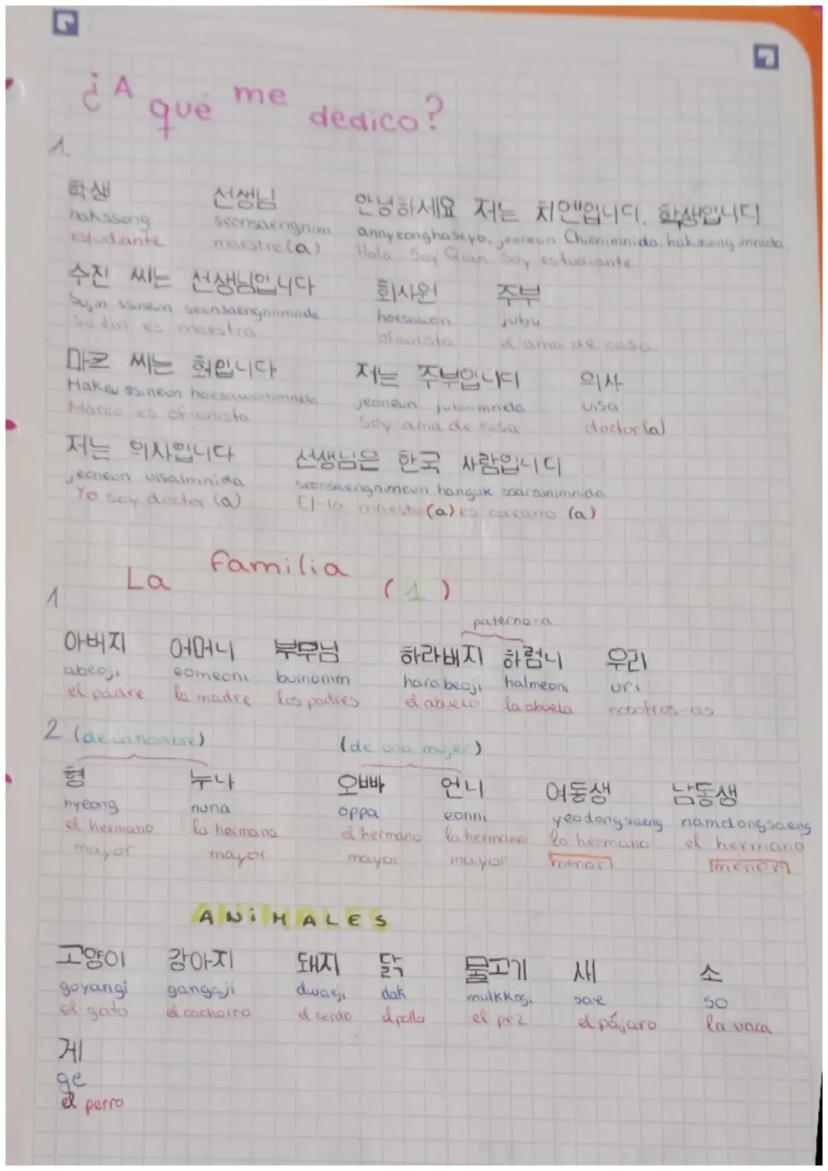 ¿A qué me dedico?
1.
학생 선생님 안녕하세요 저는 치엔입니다. 학생입니다
haksseng seonsaengnim annyeonghaseyo, jeoneun Chienimnida, haksaeng imnida
estudiante maestro(a) Hola. Soy Qian Soy estudiante
수진 씨는 선생님입니다 회사원 주부
Sujin ssineun seonsaengnimnida hoesawon jubu
Sujin es maestra oficinista el ama de casa
마르 씨는 회입니다 저는 주부입니다 의사
ssineun hoesawonimnida jeoneun jubuimnida uisa
Marco es oficinista Soy ama de casa doctor(a)
저는 의사입니다 선생님은 한국 사람입니다
jeoneun uisaimnida seonsaengnimeun hanguk saaraimnimnida
Yo soy doctor (a) El-la maestro(a) es coreano (a)
La familia (1)
1 paterno-a
아버지 어머니 부무님 하라버지 하럼니 우리
abeoji eomeoni bumonim harabeoji halmeoni uri
el padre la madre los padres el abuelo la abuela nosotros-as
2 (de un hombre) (de una mujer)
형 누나 오빠 언니 여동생 남동생
hyeong nuna oppa eonni yeodongsaeng namdongsaeng
el hermano la hermana el hermano la hermana la hermana el hermano
mayor mayor mayor mayor menor menor
ANiMALES
고양이 강아지 돼지 닭 물고기 새 소
goyangi gangaji dwaeji dak mulkkogi sae so
el gato el cachorro el cerdo el pollo el pez el pájaro la vaca
게
ge
el perro